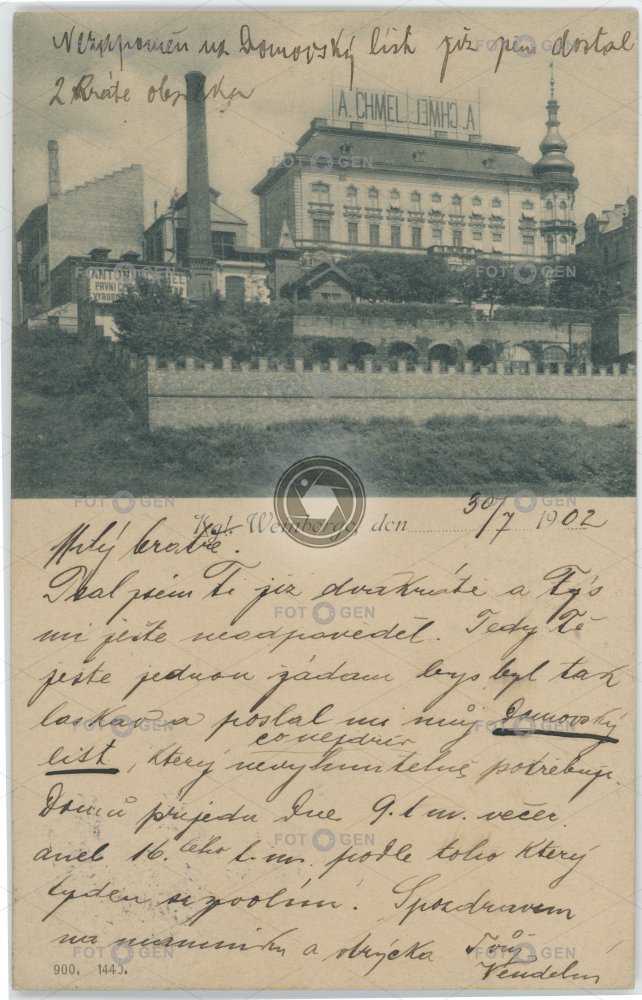 Nezapomeň na Domovský list již jsem dostal
2 kráte
A. CHMEL A. CHMEL
ANTONÍN CHMEL
PRVNÍ
VÝROB
Kgl. Weinberge, den 30/7 1902
Milý bratře.
Psal jsem Ti již dvakráte a Tys
mi ješte neodpověděl. Tedy Tě
ješte jednou žádam bys byl tak
laskav a poslal mi můj Domovský
co nejdřív
list, který nevyhnutelně potřebuji.
Domů přijedu Dne 9. t. m. večer.
aneb 16. teho t. m. podle toho který
týden si zvolím. S pozdravem
na maminku a strýčka Tvůj
Vendelín
900, 1440.
FOTOGEN